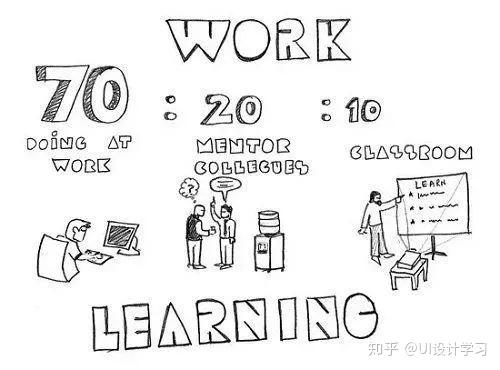 WORK
70 : 20 : 10
DOING AT WORK
MENTOR COLLEGUES
CLASSROOM
?
LEARN
A
A
A
LEARNING
知乎 @UI设计学习